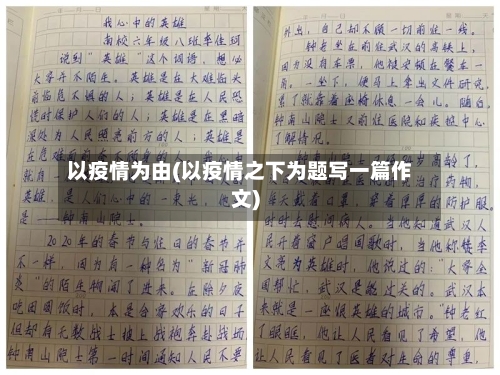 我心中的英雄
南校六年级八班李佳珂
说到“英雄”这个词语，想必
大家并不陌生。英雄是在大难临头
前临危不惧的人；英雄是在人民恐
慌时保护人们的人；英雄是在黑暗
深处为人民照亮前方的人；英雄是
在危难
就是一
英雄，是人们心中的一束光，他
是——钟南山院士。
2020年的春节与往日的春节并
不一样，因为有一种名为“新冠肺
炎”的陌生物闯了进来。在除夕夜
吃团圆饭时，本是合家欢乐的日子
但却有无数战士披上战袍奔赴战场
钟南山院士第一时间通知人民不要
外出，自己却不顾一切前往一线。
钟老坐在前往武汉的高铁上，
因为没有车票，他被安顿在餐车一
角。一坐下，便马上拿出文件研究，
累了就靠着座椅休息一会儿。随后，
钟南山院士又前往医院和疾控中心
了解情况。
岁高龄了，
治疗药物，
每天戴着口罩，穿着厚厚的防护服，
时时去慰问病人。当他知道武汉人
民开着窗户唱国歌时，当他称赞李
文亮为英雄时，他说过的：“大家全
国帮忙，武汉是能过关的。武汉本
来就是一座很英雄的城市。”钟老红
了眼眶，他让人民看见了希望，他
让人民看见了医者对生命的尊重，
以疫情为由(以疫情之下为题写一篇作
文)